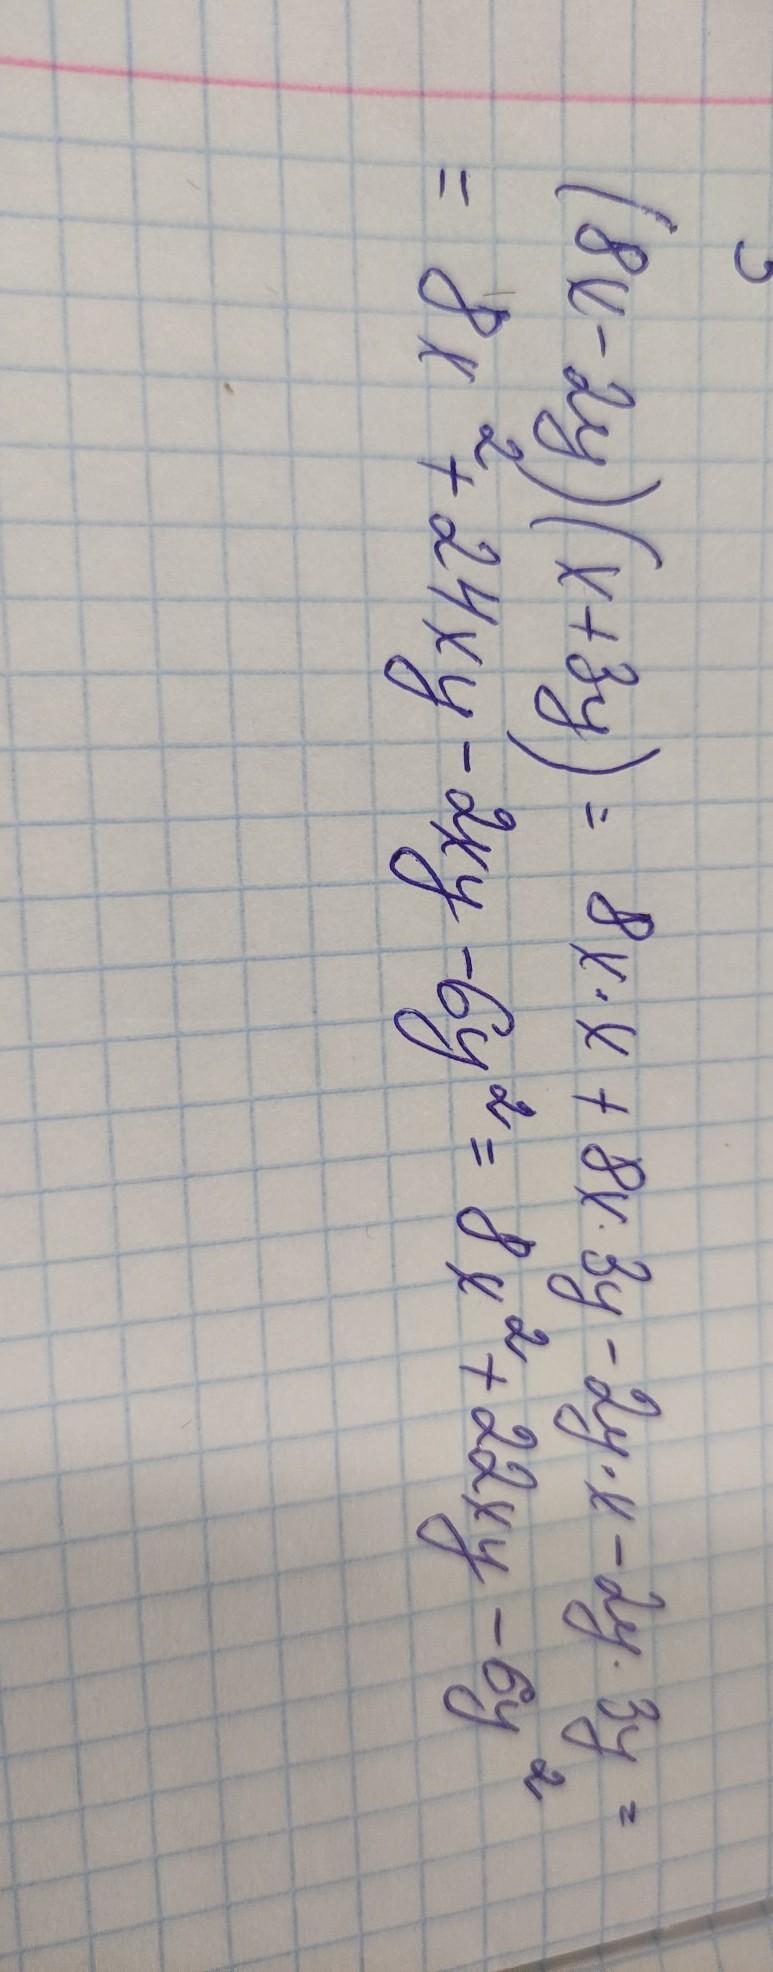 (8x-2y)(x+3y) = 8x·x + 8x·3y - 2y·x - 2y·3y =
= 8x² + 24xy - 2xy - 6y² = 8x² + 22xy - 6y²